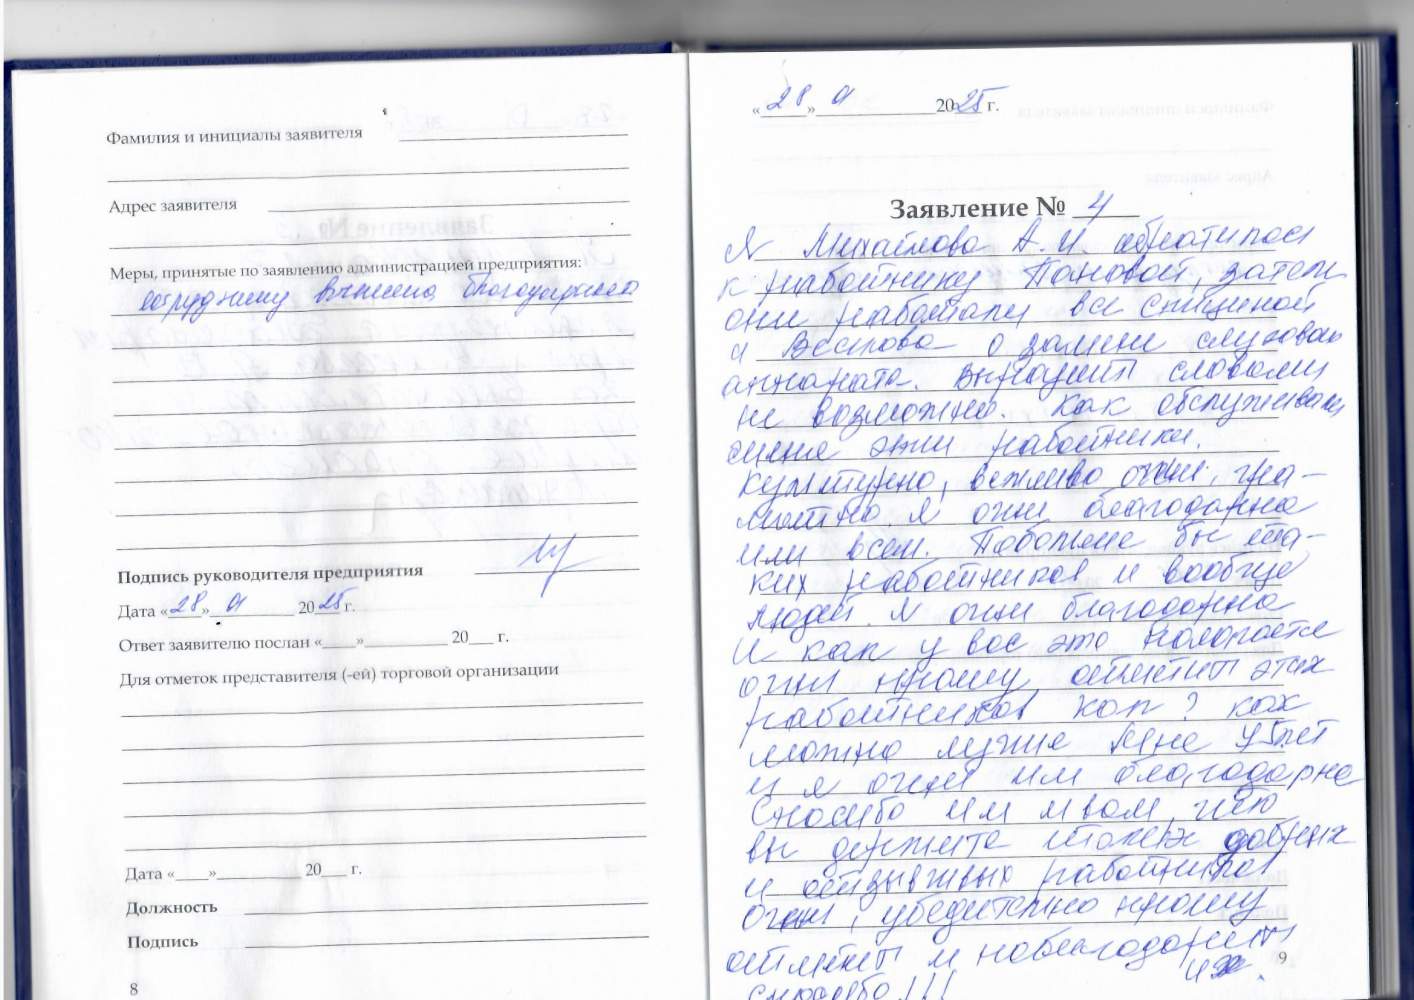 Фамилия и инициалы заявителя
Адрес заявителя
Меры, принятые по заявлению администрацией предприятия:
сотруднику вынесена благодарность
Подпись руководителя предприятия
Дата «28» 01 2025 г.
Ответ заявителю послан «____»__________ 20___ г.
Для отметок представителя (-ей) торговой организации
Дата «____»__________ 20___ г.
Должность
Подпись
8
«28» 01 2025 г.
Заявление № 4
Я Михайлова А.И. обратилась
к работнику Пановой, затем
они работали все
и о замене слухового
аппарата. Выразить словами
не возможно. Как обслуживали
меня эти работники.
Культурно, вежливо очень, гра-
мотно. Я очень благодарна
им всем. Побольше бы та-
ких работников и вообще
людей. Я очень благодарна
И как у вас это полагается
очень прошу отметить этих
работников как? как
можно лучше Мне лет
и я очень им благодарна
Спасибо им и вам, что
вы держите таких добрых
и отзывчивых работников
Очень, убедительно прошу
отметить и поблагодарить
их.
спасибо!!!
9